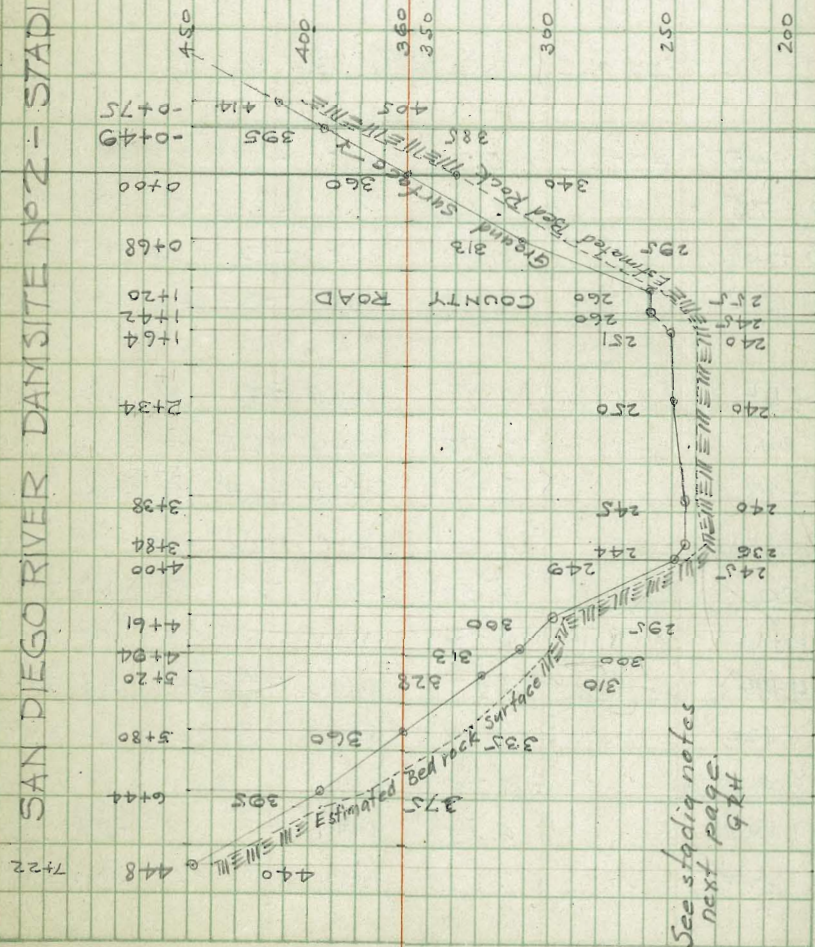 SAN DIEGO RIVER DAMSITE Nº 2 - STADI
450
400
360
350
300
250
200
-0+75 414 405
-0+49 395 385
0+00 360 340
0+68 313 295
1+20 260 255
1+42 260 245
1+64 251 240
2+34 250 240
3+38 245 240
3+84 244 236
4+00 249 245
4+61 300 295
4+94 313 300
5+20 328 310
5+80 360 335
6+44 395 375
7+22 448 440
COUNTY ROAD
Ground Surface
Estimated Bed Rock
Estimated Bed rock surface
See stadia notes
next page.
GRH